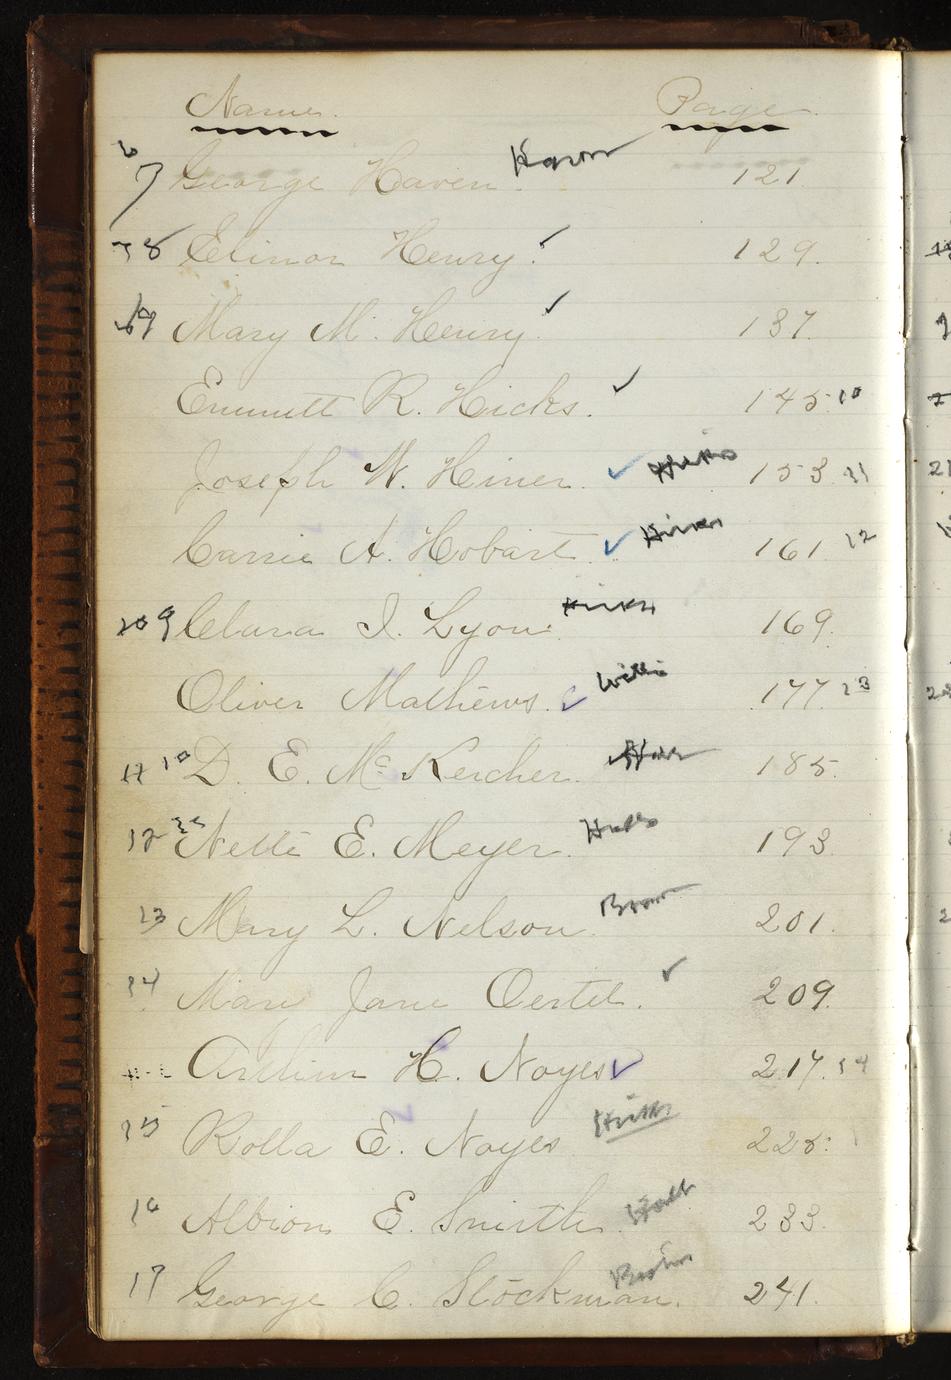 Name. Page.
7 George Haven. 121.
8 Elinor Henry. ✓ 129.
9 Mary M. Henry. ✓ 137.
Emmett R. Hicks. ✓ 145. 10
Joseph W. Hiner. ✓ 153. 11
Carrie A. Hobart. ✓ 161. 12
9 Clara I. Lyon. 169.
Oliver Mathews. ✓ 177. 13
11 10 D. E. McKercher. 185.
12 Nettie E. Meyer. 193.
13 Mary L. Nelson. Brown 201.
14 Mary Jane Oertel. ✓ 209.
Arthur H. Noyes ✓ 217. 14
15 Rolla E. Noyes 225.
16 Albion E. Smith. 233.
17 George C. Stockman. 241.